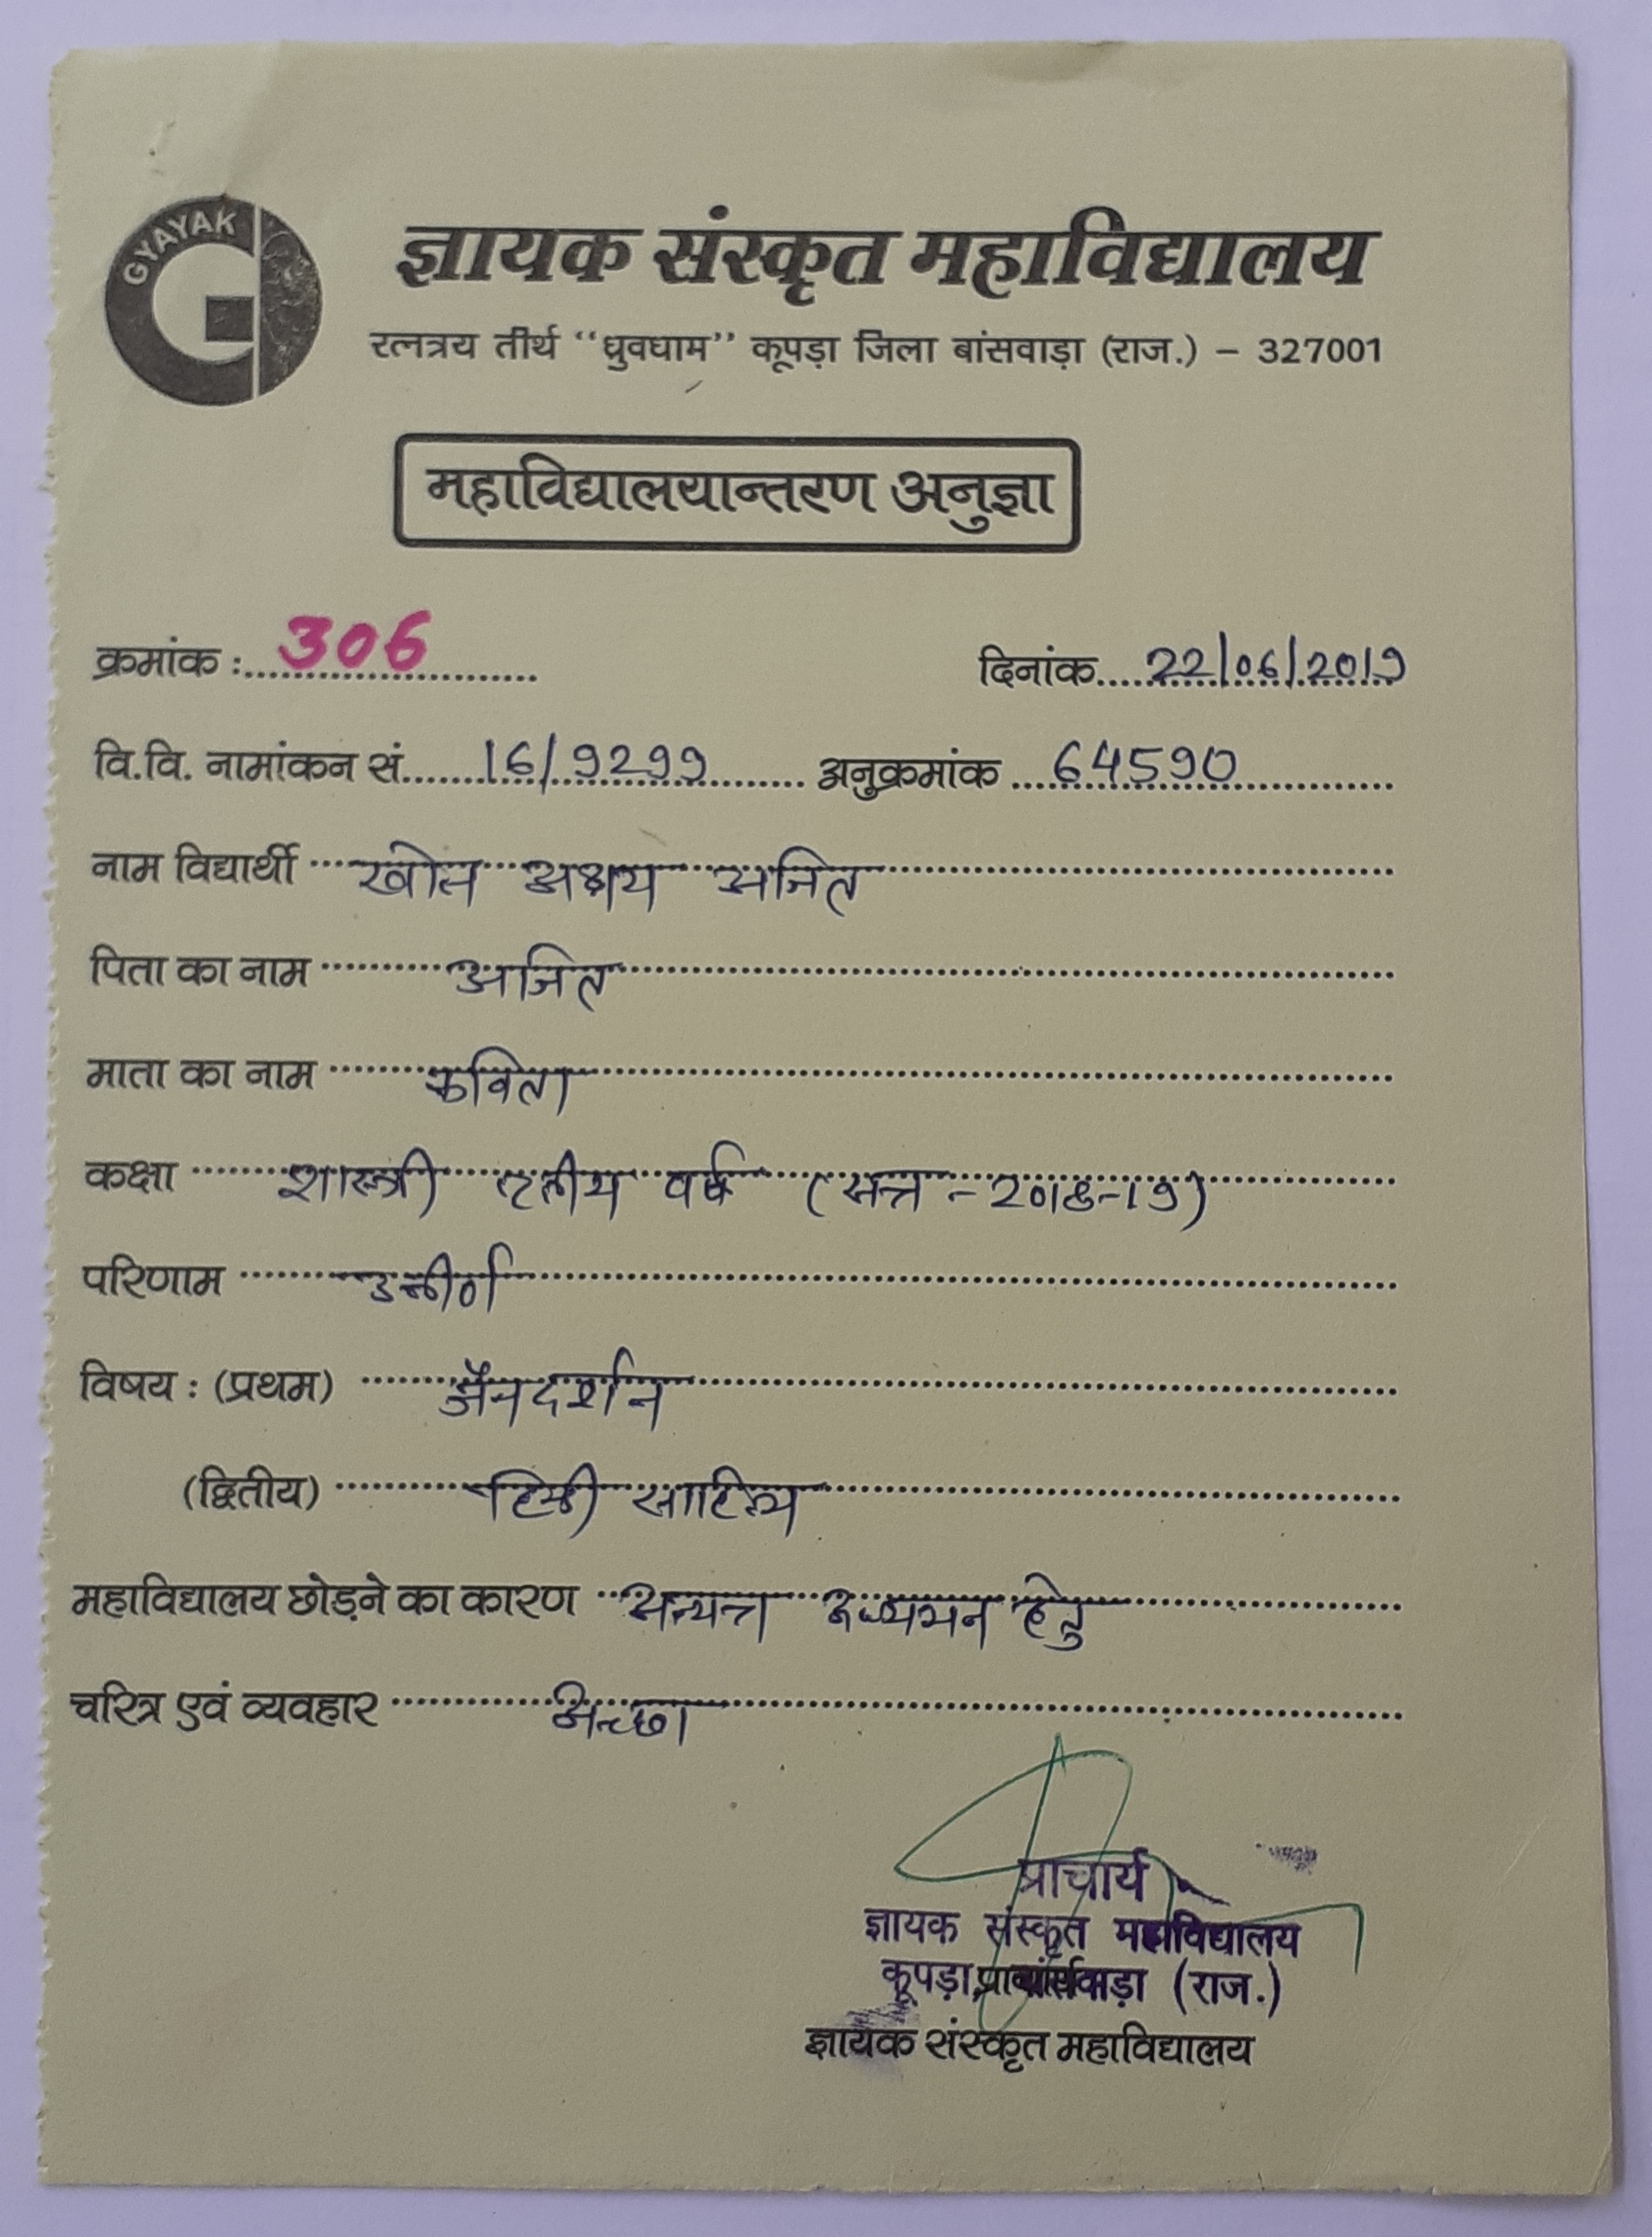 GYAYAK
ज्ञायक संस्कृत महाविद्यालय
रत्नत्रय तीर्थ "ध्रुवधाम" कूपड़ा जिला बांसवाड़ा (राज.) - 327001
महाविद्यालयान्तरण अनुज्ञा
क्रमांक : 306 दिनांक 22/06/2019
वि.वि. नामांकन सं. 16/9299 अनुक्रमांक 64590
नाम विद्यार्थी खोत अक्षय अजित
पिता का नाम अजित
माता का नाम कविता
कक्षा शास्त्री तृतीय वर्ष (सत्र - 2018-19)
परिणाम उत्तीर्ण
विषय : (प्रथम) जैनदर्शन
(द्वितीय) हिन्दी साहित्य
महाविद्यालय छोड़ने का कारण अन्यत्र अध्ययन हेतु
चरित्र एवं व्यवहार अच्छा
प्राचार्य
ज्ञायक संस्कृत महाविद्यालय
कूपड़ा, बांसवाड़ा (राज.)
प्राचार्य
ज्ञायक संस्कृत महाविद्यालय